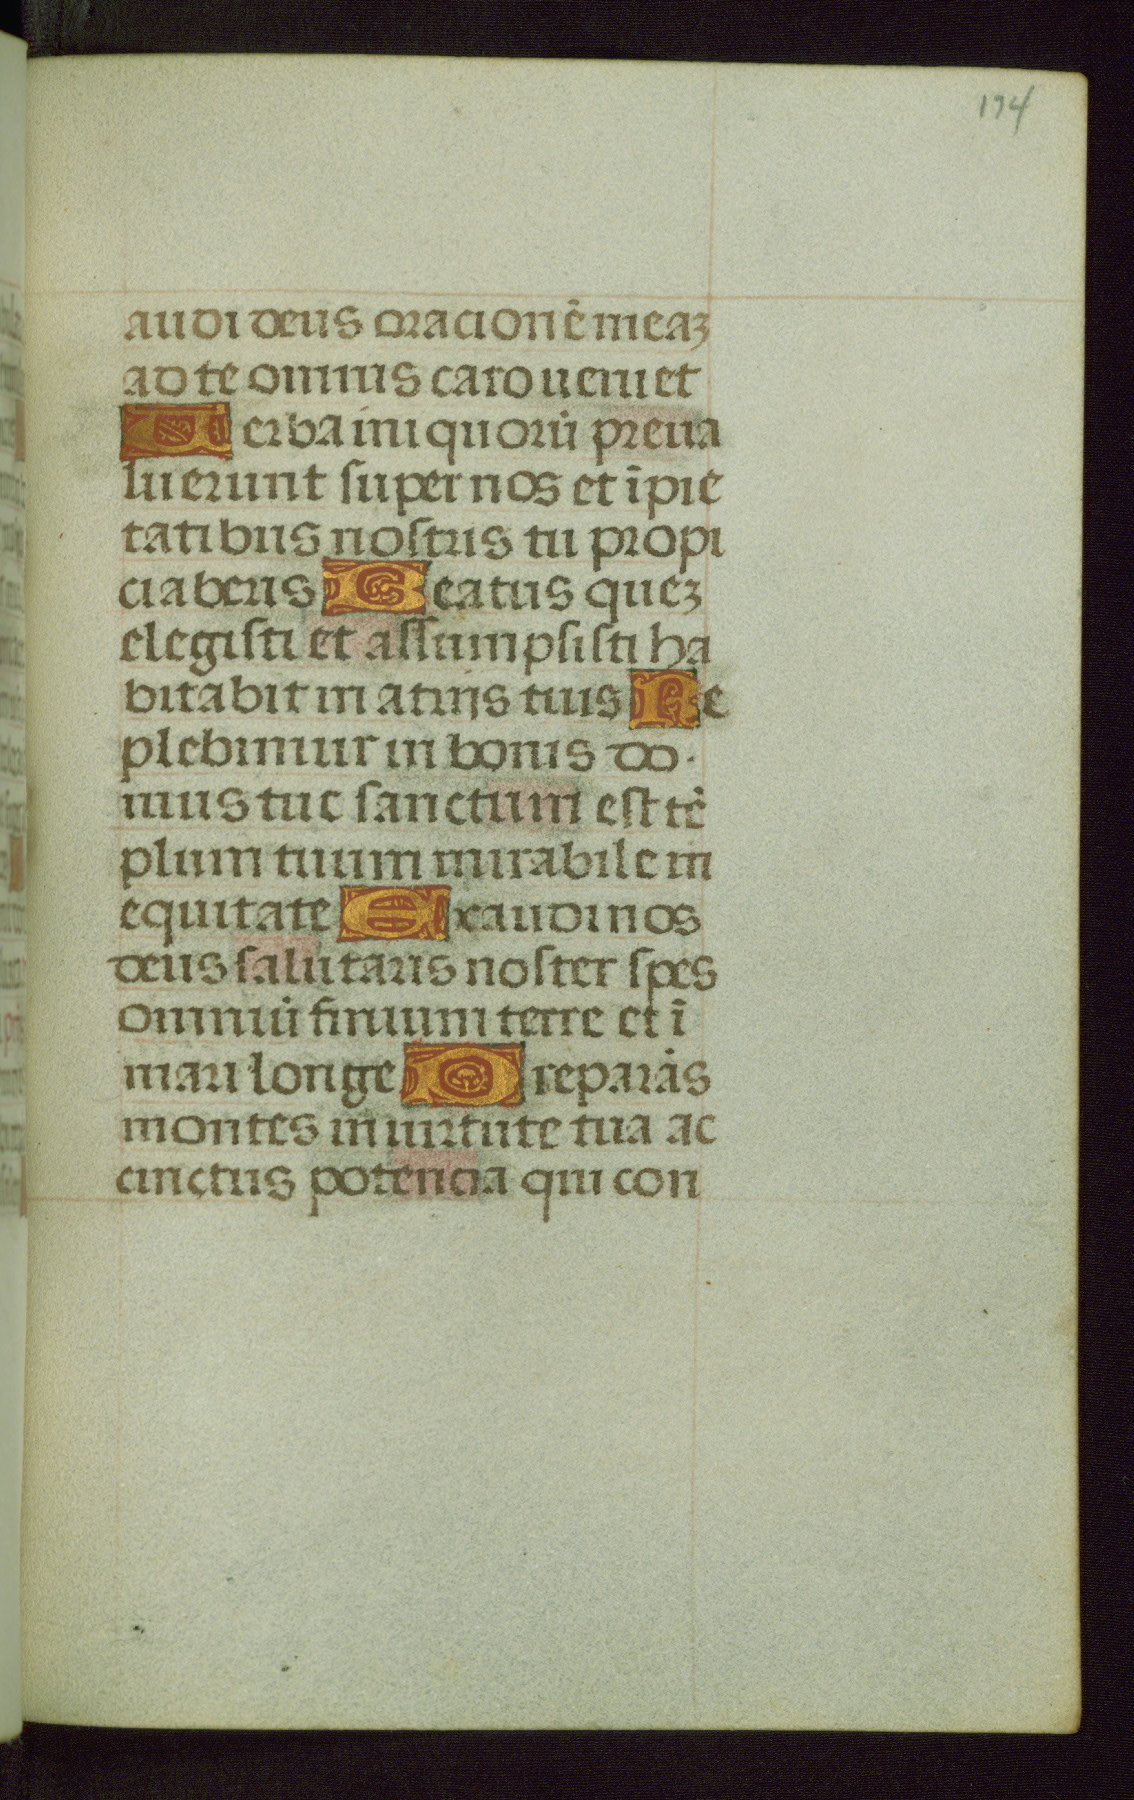 194
audi deus oracionē meaꝫ
ad te omnis caro ueniet
Uerba iniquorū preua
luerunt super nos et īpie
tatibus nostris tu propi
ciaberis Beatus queꝫ
elegisti et assumpsisti ha
bitabit in atrijs tuis Re
plebimur in bonis do·
mus tue sanctum est tē
plum tuum mirabile in
equitate Exaudi nos
deus salutaris noster spes
omniū finium terre et ī
mari longe Preparās
montes in uirtute tua ac
cinctus potencia qui con